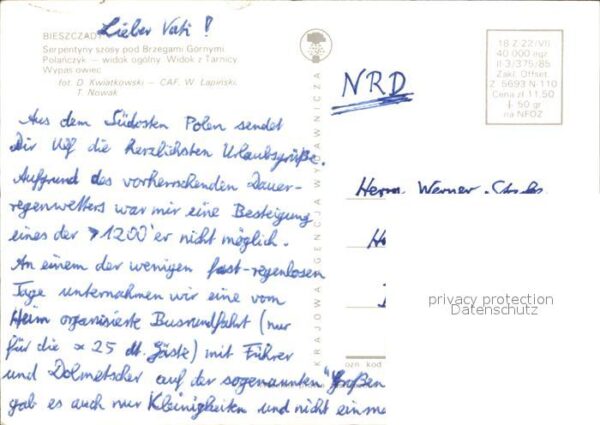 Lieber Vati!
BIESZCZADY
Serpentyny szosy pod Brzegami Górnymi.
Polańczyk — widok ogólny. Widok z Tarnicy
Wypas owiec
fot. D. Kwiatkowski — CAF, W. Łapiński,
T. Nowak
Aus dem Südosten Polen sendet
Dir die herzlichsten Urlaubsgrüße.
Aufgrund des vorherrschenden Dauer-
regenwetters war mir eine Besteigung
eines der >1200'er nicht möglich.
An einem der wenigen fast-regenlosen
Tage unternahmen wir eine vom
Heim organisierte Busrundfahrt (nur
für die ≈ 25 dt. Gäste) mit Führer
und Dolmetscher auf der sogenannten "Großen
gab es auch nur Kleinigkeiten und nicht einma
KRAJOWA AGENCJA WYDAWNICZA
18 Z.22/VII
40.000 egz.
II-3/375/85
Zakł. Offset.
Z. 5693 N-110
Cena zł 11,50
+ 50 gr
na NFOZ
NRD
Herrn Werner
Ho
ozn. kod
privacy protection
Datenschutz